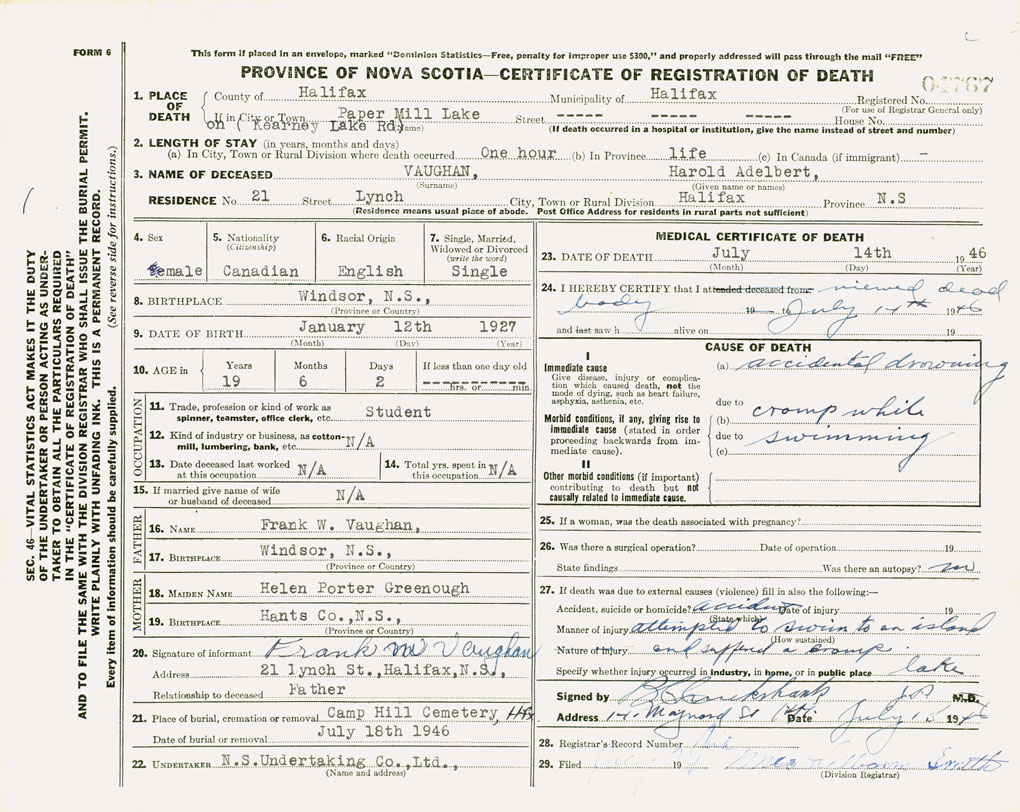 FORM 6
This form if placed in an envelope, marked "Dominion Statistics—Free, penalty for improper use $300," and properly addressed will pass through the mail "FREE"
PROVINCE OF NOVA SCOTIA—CERTIFICATE OF REGISTRATION OF DEATH
04767
1. PLACE OF DEATH County of Halifax Municipality of Halifax Registered No.
(For use of Registrar General only)
If in City or Town Paper Mill Lake Street ----- ----- ----- House No.
on ( Kearney Lake Rd) (If death occurred in a hospital or institution, give the name instead of street and number)
2. LENGTH OF STAY (in years, months and days)
(a) In City, Town or Rural Division where death occurred One hour (b) In Province life (c) In Canada (if immigrant) -
3. NAME OF DECEASED VAUGHAN, Harold Adelbert,
(Surname) (Given name or names)
RESIDENCE No. 21 Street Lynch City, Town or Rural Division Halifax Province N.S
(Residence means usual place of abode. Post Office Address for residents in rural parts not sufficient)
SEC. 46—VITAL STATISTICS ACT MAKES IT THE DUTY
OF THE UNDERTAKER OR PERSON ACTING AS UNDER-
TAKER TO OBTAIN ALL THE PARTICULARS REQUIRED
IN THE "CERTIFICATE OF REGISTRATION OF DEATH"
AND TO FILE THE SAME WITH THE DIVISION REGISTRAR WHO SHALL ISSUE THE BURIAL PERMIT.
WRITE PLAINLY WITH UNFADING INK. THIS IS A PERMANENT RECORD.
Every item of information should be carefully supplied. (See reverse side for instructions.)
4. Sex 5. Nationality (Citizenship) 6. Racial Origin 7. Single, Married, Widowed or Divorced (write the word)
emale Canadian English Single
8. BIRTHPLACE Windsor, N.S.,
(Province or Country)
9. DATE OF BIRTH January 12th 1927
(Month) (Day) (Year)
10. AGE in Years Months Days If less than one day old
19 6 2 hrs. or min.
OCCUPATION
11. Trade, profession or kind of work as spinner, teamster, office clerk, etc. Student
12. Kind of industry or business, as cotton-mill, lumbering, bank, etc. N/A
13. Date deceased last worked at this occupation N/A 14. Total yrs. spent in this occupation N/A
15. If married give name of wife or husband of deceased N/A
FATHER
16. NAME Frank W. Vaughan,
17. BIRTHPLACE Windsor, N.S.,
(Province or Country)
MOTHER
18. MAIDEN NAME Helen Porter Greenough
19. BIRTHPLACE Hants Co.,N.S.,
(Province or Country)
20. Signature of informant Frank W Vaughan
Address 21 lynch St.,Halifax,N.S.,
Relationship to deceased Father
21. Place of burial, cremation or removal Camp Hill Cemetery, Hfx
Date of burial or removal July 18th 1946
22. UNDERTAKER N.S.Undertaking Co.,Ltd.,
(Name and address)
MEDICAL CERTIFICATE OF DEATH
23. DATE OF DEATH July 14th 1946
(Month) (Day) (Year)
24. I HEREBY CERTIFY that I attended deceased from viewed dead
body 19 to July 14th 1946
and last saw h alive on 19
CAUSE OF DEATH
I
Immediate cause (a) accidental drowning
Give disease, injury or complication which caused death, not the mode of dying, such as heart failure, asphyxia, asthenia, etc.
due to
Morbid conditions, if any, giving rise to immediate cause (stated in order proceeding backwards from immediate cause).
(b) cramp while
due to swimming
(c)
II
Other morbid conditions (if important) contributing to death but not causally related to immediate cause.
25. If a woman, was the death associated with pregnancy?
26. Was there a surgical operation? Date of operation 19
State findings Was there an autopsy? no
27. If death was due to external causes (violence) fill in also the following:—
Accident, suicide or homicide? accident Date of injury 19
(State which)
Manner of injury attempted to swim to an island
(How sustained)
Nature of injury and suffered a cramp
Specify whether injury occurred in industry, in home, or in public place lake
Signed by J.P. M.D.
Address 14 Maynard St Hfx Date July 15 1946
28. Registrar's Record Number
29. Filed 19 William Smith
(Division Registrar)